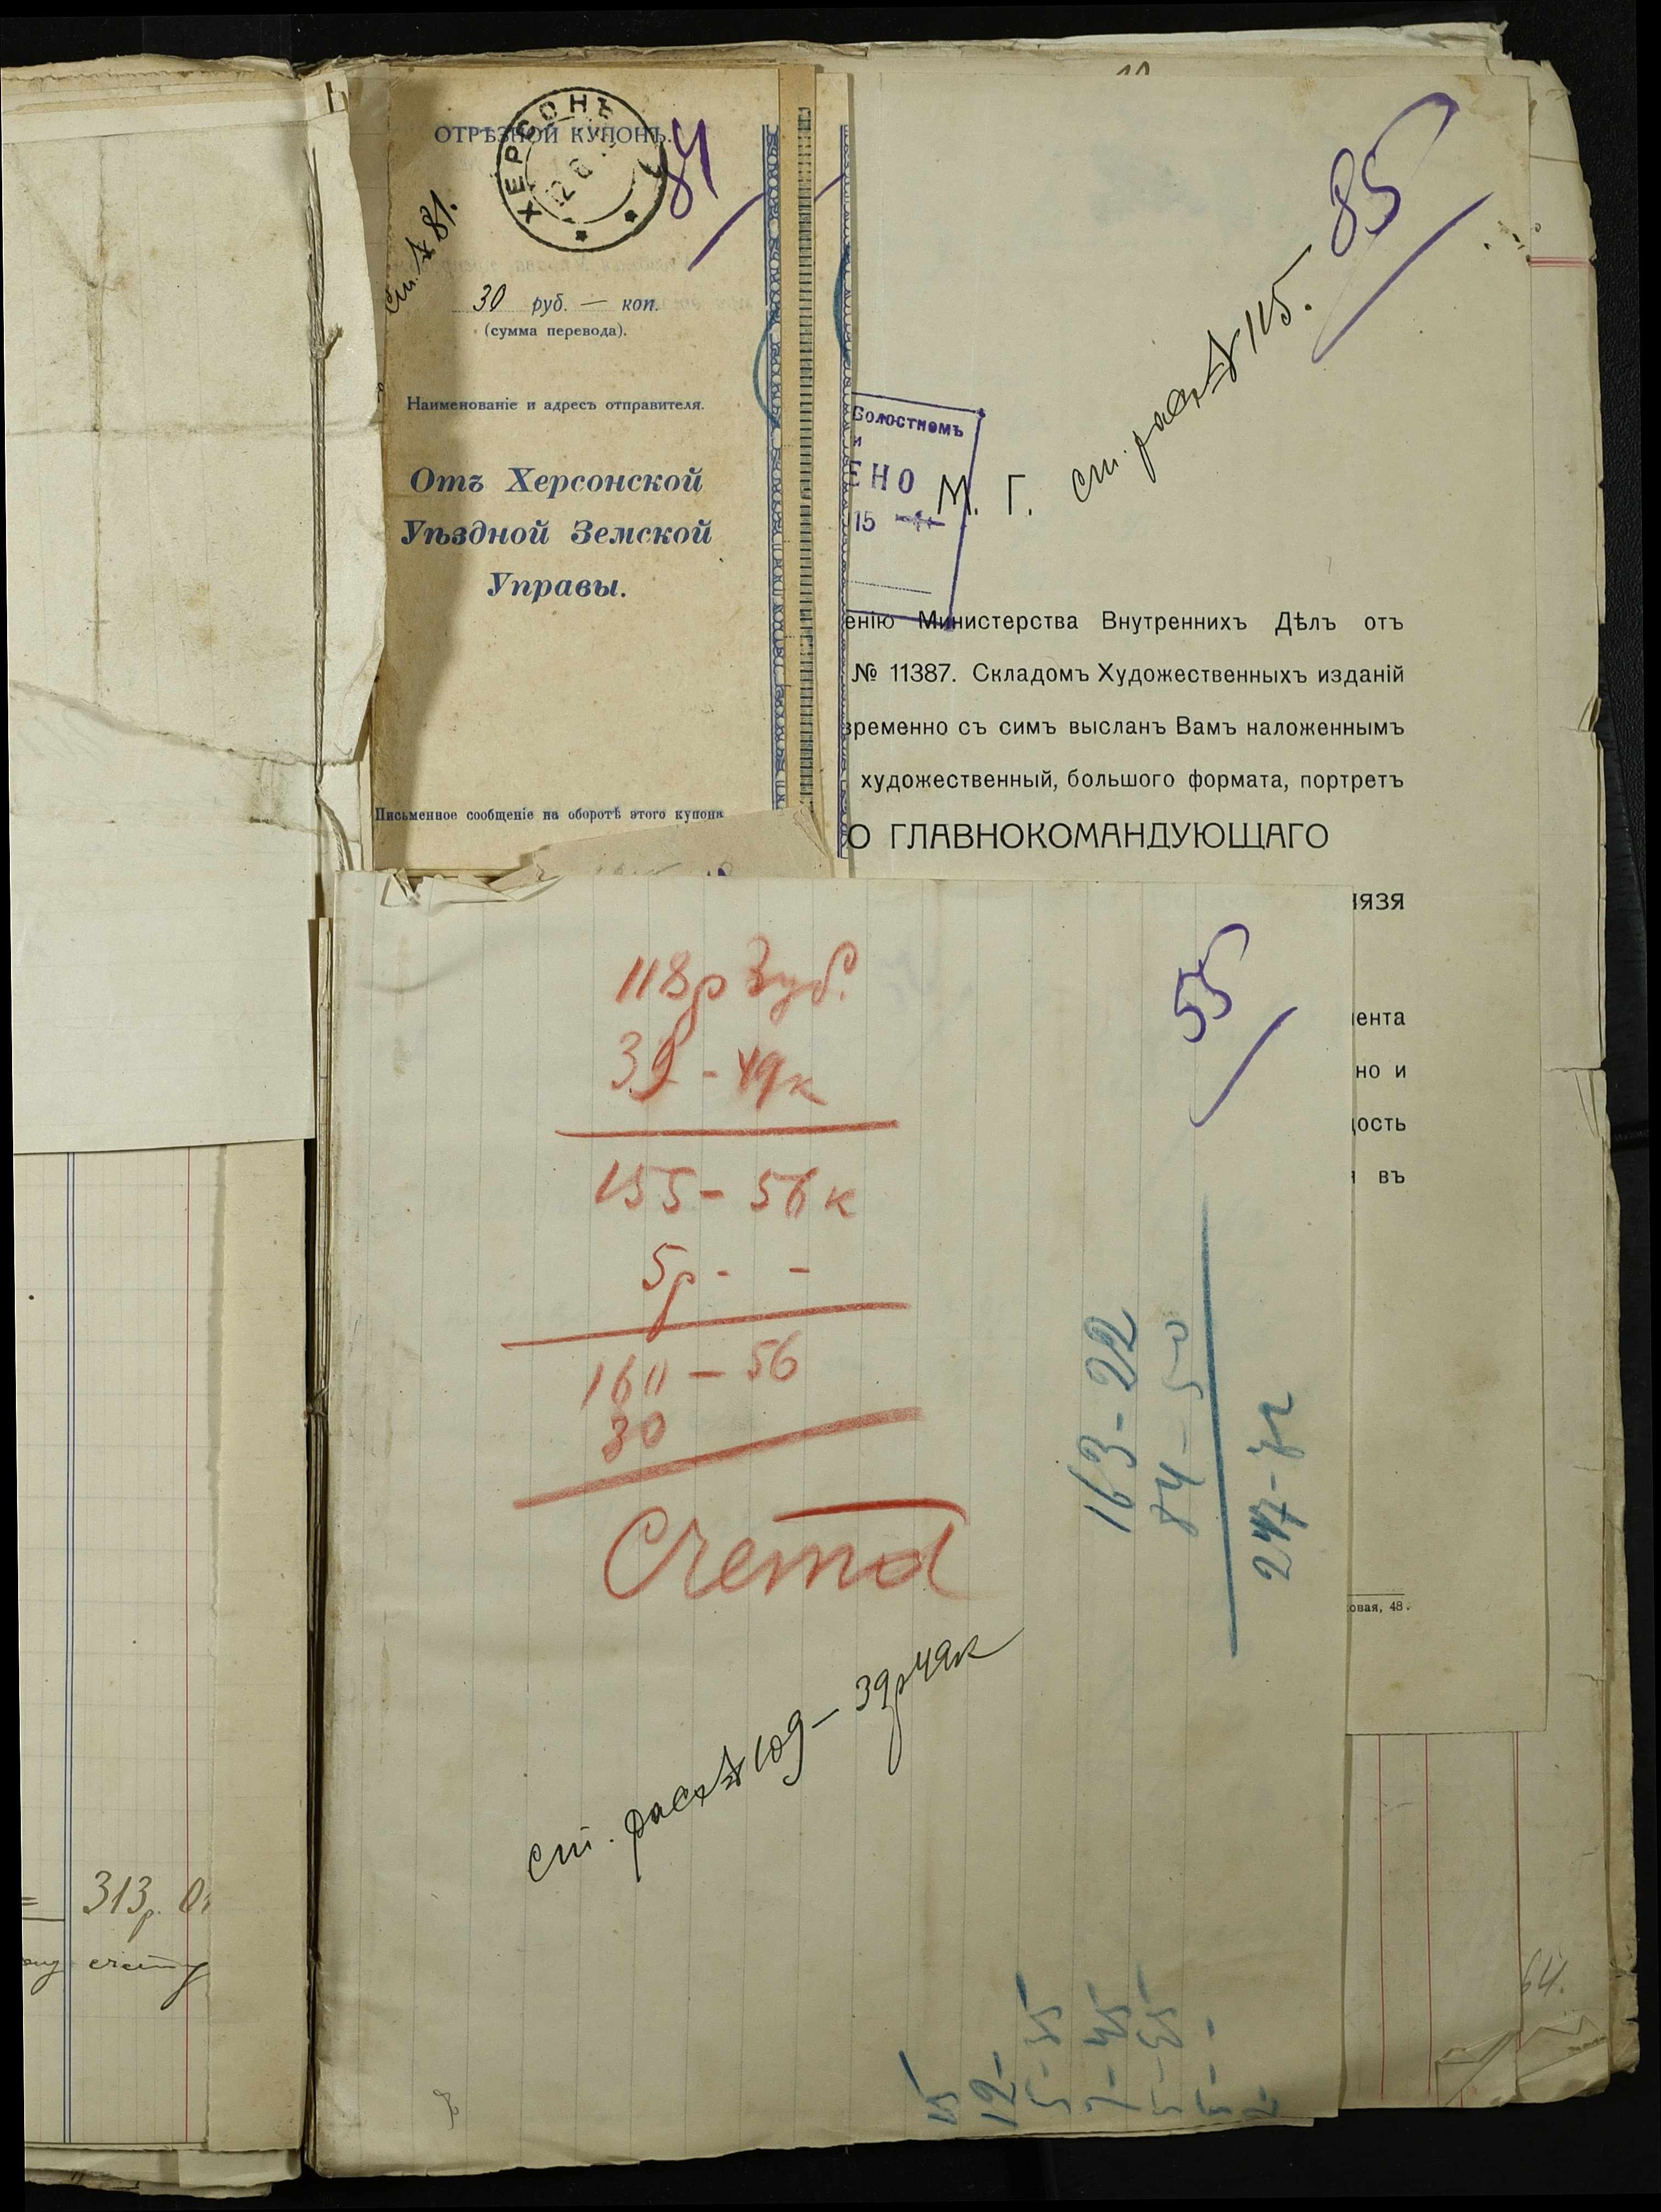 ОТРѢЗНОЙ КУПОНЪ.
ХЕРСОНЪ
12 6
84
ст. № 81.
30 руб. — коп.
(сумма перевода).
Наименованіе и адресъ отправителя.
Отъ Херсонской
Уѣздной Земской
Управы.
Письменное сообщеніе на оборотѣ этого купона
85
ст. расх № 115.
Волостномъ
и
ЕНО
15
М. Г.
енію Министерства Внутреннихъ Дѣлъ отъ
№ 11387. Складомъ Художественныхъ изданій
временно съ симъ высланъ Вамъ наложеннымъ
художественный, большого формата, портретъ
О ГЛАВНОКОМАНДУЮЩАГО
НЯЗЯ
мента
но и
дость
въ
овая, 48.
55
118р
39 - 49к
155 - 56 к
5р - -
160 - 56
30
Счета
163 - 22
84 - 50
247 - 72
ст. расх № 109 — 39р 49к
313р.
счету
64.